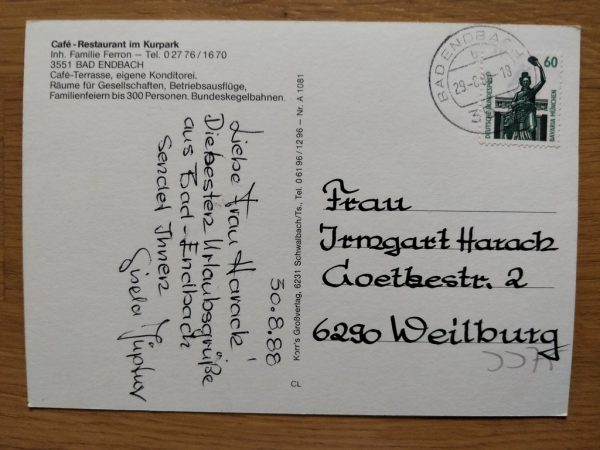 Café-Restaurant im Kurpark
Inh. Familie Ferron – Tel. 0 27 76 / 16 70
3551 BAD ENDBACH
Café-Terrasse, eigene Konditorei.
Räume für Gesellschaften, Betriebsausflüge,
Familienfeiern bis 300 Personen. Bundeskegelbahnen
30.8.88
Liebe Frau Harack!
Die besten Urlaubsgrüße
aus Bad-Endbach
sendet Ihnen
Gisela
Korr's Großverlag, 6231 Schwalbach/Ts., Tel. 0 61 96 / 12 96 – Nr. A 1081
CL
BAD ENDBACH
60
DEUTSCHE BUNDESPOST
BAVARIA MÜNCHEN
Frau
Irmgart Harack
Goethestr. 2
6290 Weilburg